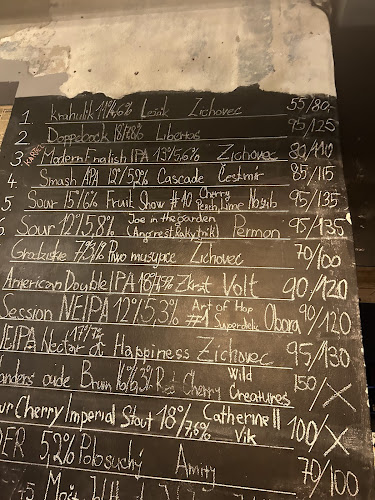 1 Krahulík 11° 4,6% Ležák Zichovec 55/80,-
2 Doppelbock 18° 7,8% Libertas 95/125
3 Modern English IPA 13° 5,6% Zichovec 80/110
4. Smash APA 12° 5,2% Cascade Čestmír 85/115
5 Sour 15° 6% Fruit Show #10 Cherry Peach, Lime 95/135
Sour 12° 5,8% Joe in the garden (Angrešt, Rakytník) Permon 95/135
Piwo Zichovec 70/100
American Double IPA 18° Zkrat Volt 90/120
Session NEIPA 12° 5,3% Art of Hop #1 Obora 90/120
NEIPA Nectar of Happiness 17° 7% Zichovec 95/130
oude Bruin Red Cherry Wild Creatures 150/X
ur Cherry Imperial Stout 18° 7,6% Catherine II Vik 100/X
DER 5,2% Polosuchý Amity 70/100